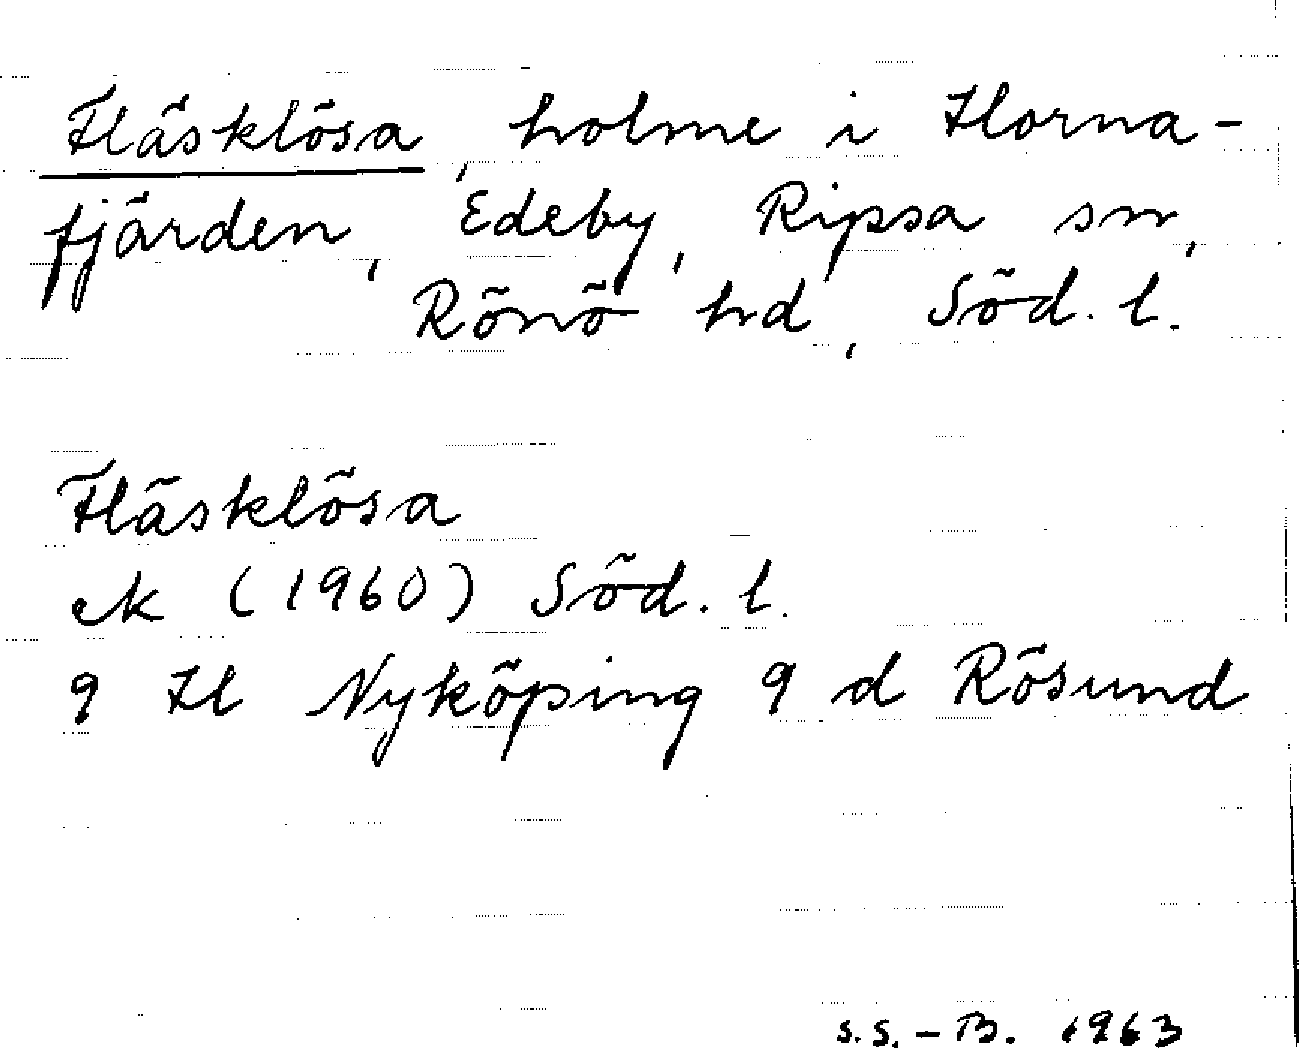 Fläsklösa, holme i Horna-
fjärden, Edeby, Ripsa sn,
Rönö hd, Söd. l.
Fläsklösa
ek (1960) Söd. l.
9 H Nyköping 9 d Rösund
S.S.-B. 1963